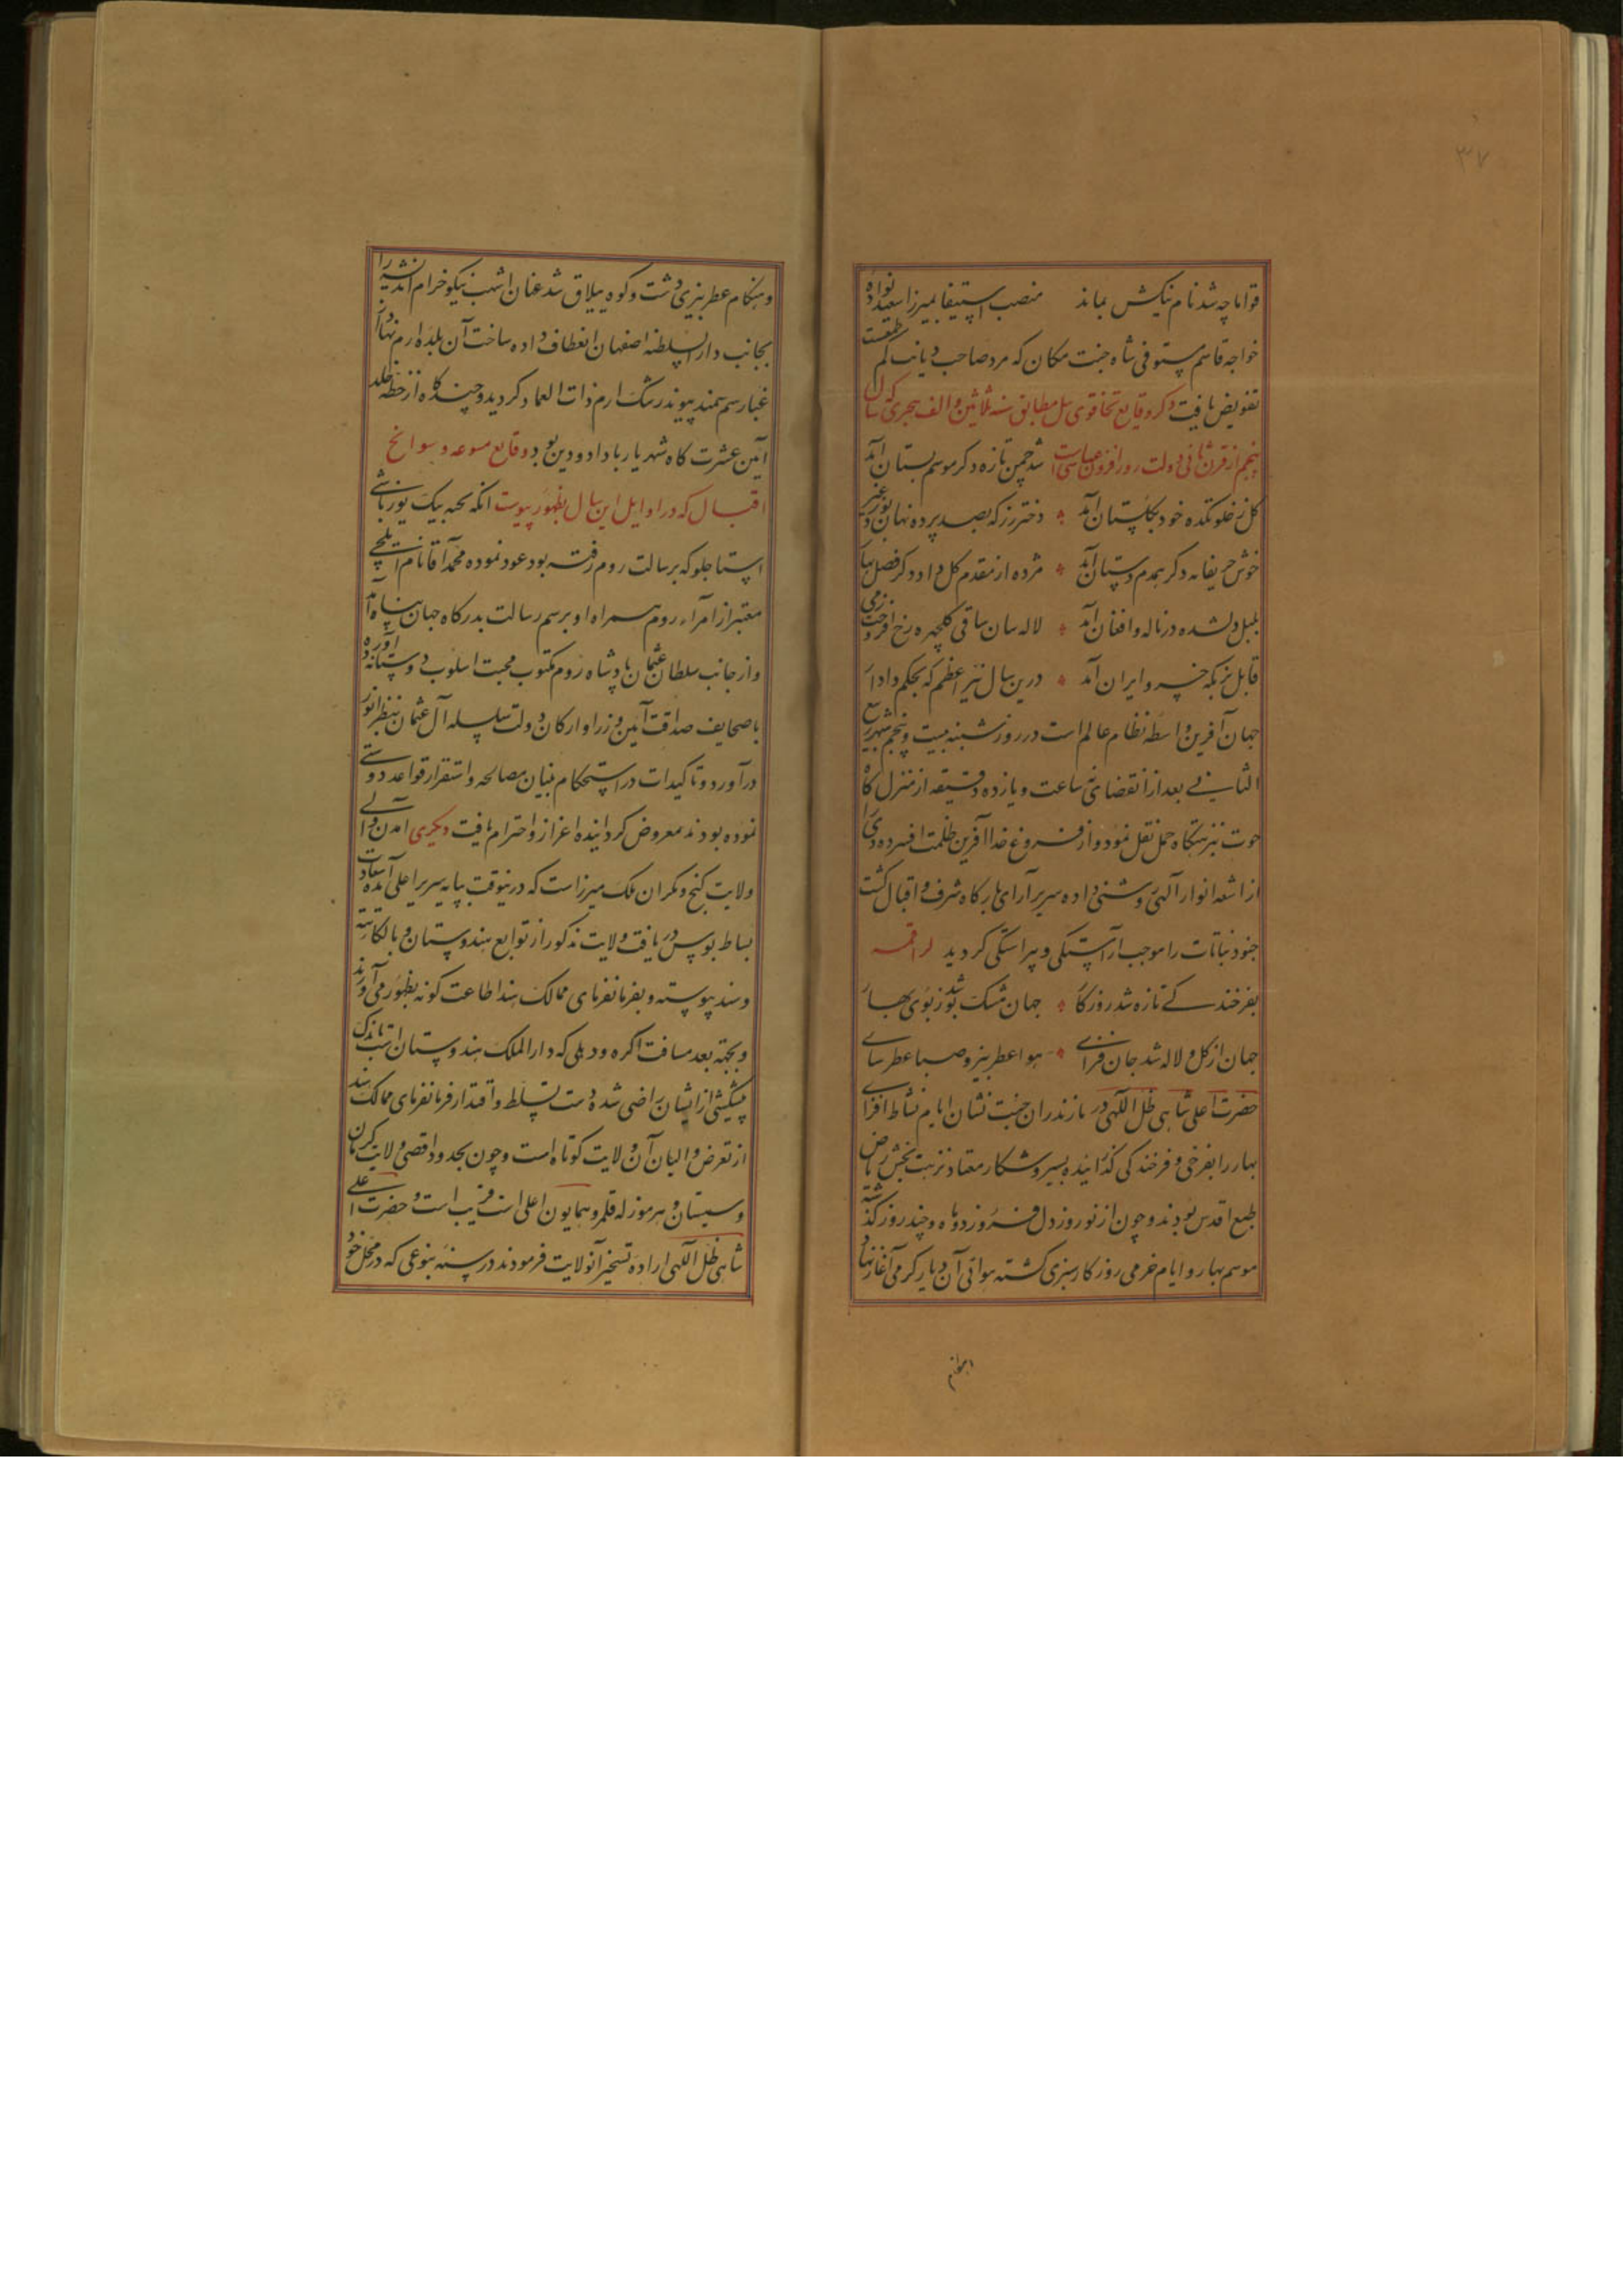 ۳۷
قواما چه شد نام نیکش بماند منصب استیفا بمیرزا سعید نواده
خواجه قاسم مستوفی شاه جنت مکان که مرد صاحب دیانت کم طمعست
تفویض یافت ذکر وقایع تخاقوی ئیل مطابق سنه ثلاثین و الف هجری که سال
پنجم از قرن ثانی دولت روز افزون عباسی است شد چمن تازه دکر موسم بستان آمد
کل ز خلوتکده خود بکلستان آمد دختر رز که بصد پرده نهان بود عزیز
خوش حریفانه دکر همدم مستان آمد مژده از مقدم کل داد دکر فصل بهار
بلبل دلشده در ناله و افغان آمد لاله سان ساقی کلچهره رخ افروخت ز می
قابل بزمکه خسرو ایران آمد درین سال نیر اعظم که بحکم دادار
جهان آفرین واسطه نظام عالم است در روز شنبه بیست و پنجم شهر ربیع
الثانی بعد از انقضای ساعت و یازده دقیقه از منزل کاه
حوت بنزهتکاه حمل نقل نموده و از فروغ خدا آفرین ظلمت افسرده دی را
از اشعه انوار آلهی روشنی داده سریر آرای بارکاه شرف و اقبال کشت
جنود نباتات را موجب آراستکی و پیراستکی کردید لراقمه
بفرخندکی تازه شد روزکار جهان مشک بو شد ز بوی بهار
جهان از کل و لاله شد جان فزای هوا عطر بیز و صبا عطر سای
حضرت اعلی شاهی ظل اللهی در مازندران جنت نشان ایام نشاط افزای
بهار را بفرخی و فرخندکی کذرانیده بسیر و شکار معتاد نزهت بخش ریاض
طبع اقدس بودند و چون از نوروز دل فروز دو ماه و چند روز کذشته
موسم بهار و ایام خرمی روزکار سپری کشته هوای آن دیار کرمی آغاز نهاد
و هنکام عطر بیزی دشت و کوه ییلاق شد عنان اشهب نیکو خرام اندیشه را
بجانب دار السلطنه اصفهان انعطاف داده ساخت آن بلده ارم نهاد از
غبار سم سمند پیوند رشک ارم ذات العماد کردید و چند کاه از خطه خلد
آیین عشرت کاه شهریار با داد و دین بود وقایع متنوعه و سوانح
اقبال که در اوایل این سال بظهور پیوست آنکه یخه بیک یوزباشی
استاجلو که برسالت روم رفته بود عود نموده محمد آقا نام ایلچی
معتبر از امراء روم همراه او برسم رسالت بدرکاه جهان پناه آمد
و از جانب سلطان عثمان پادشاه روم مکتوب محبت اسلوب دوستانه آورده
با صحایف صداقت آیین وزرا و ارکان دولت سلسله آل عثمان بنظر انور
درآورد و تاکیدات در استحکام بنیان مصالحه و استقرار قواعد دوستی
نموده بودند معروض کردانیده اعزاز و احترام یافت دیکری آمدن والی
ولایت کیج و مکران ملک میرزاست که درینوقت بپایه سریر اعلی آمده سعادت
بساط بوسی دریافت ولایت مذکور از توابع هندوستان و بالکاء تته
و سند پیوسته و بفرمانفرمای ممالک هند اطاعت کونه بظهور می آورند
و بجهه بعد مسافت اکره و دهلی که دار الملک هندوستان است باندک
پیشکشی از ایشان راضی شده دست تسلط و اقتدار فرمانفرمای ممالک هند
از تعرض والیان آن ولایت کوتاه است و چون بحدود اقصی ولایت کرمان
و سیستان و هرموز له قلمرو همایون اعلی است قریب است و حضرت اعلی
شاهی ظل اللهی اراده تسخیر آنولایت فرمودند در سنه بنوعی که در محل خود